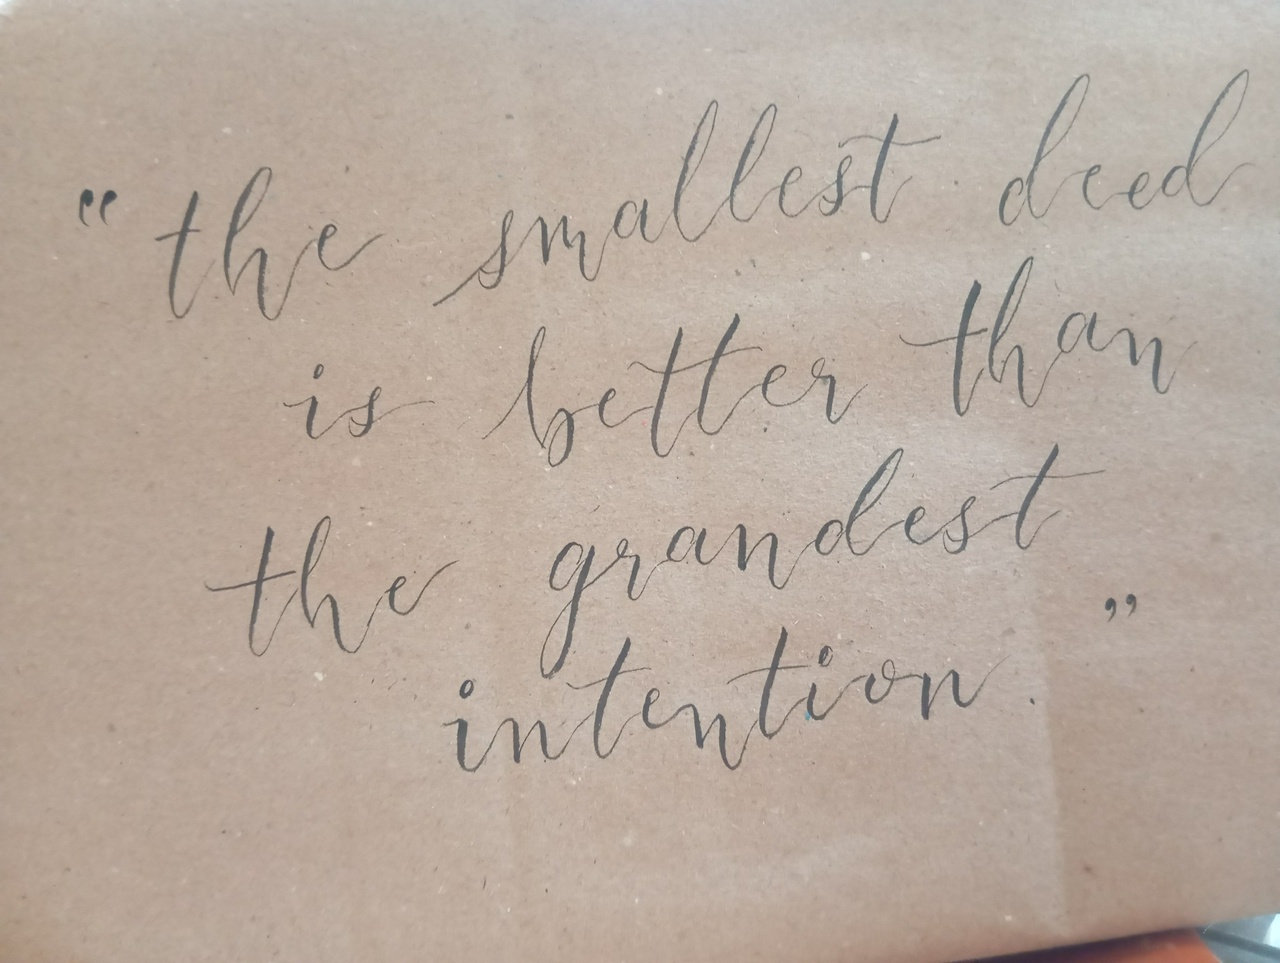 “the smallest deed
is better than
the grandest
intention.”